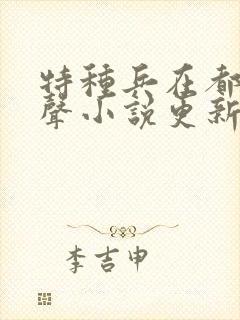 特種兵在都
聲小說更新
李吉申